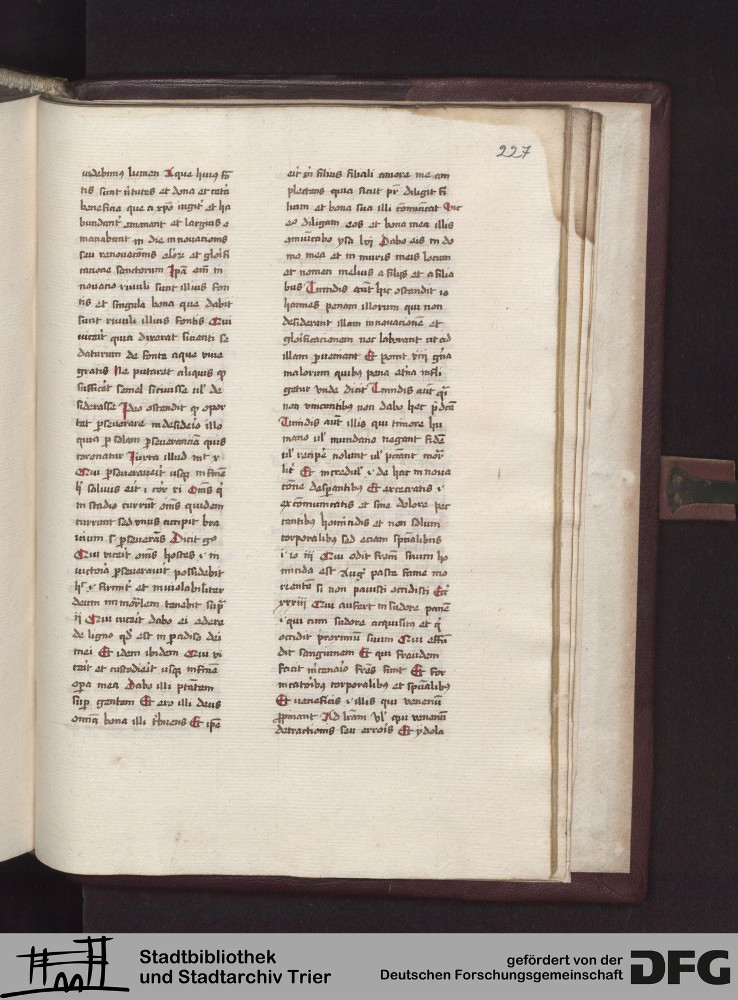 227
videbimus lumen Aque huius fō
tis sunt v̄tutes et dona et cetā
beneficia que a xpō
bundant emanant et largius e
manabunt in die innovacionis
seu renovacōnis
cacione sanctorum Ip̄a em̄ in
novacio rivuli sunt illius fon
tis et singula bona que dabit
sunt rivuli illius fontis Qui
vicerit quia dixerat sicienti se
daturum de fonte aque vive
gratis Ne putaret aliquis qͥ
sufficēt semel sitivisse ul' de
siderasse Ideo ostendit qͥ opor
tet pseverare in desideio illo
quia p solam pseveranciā quis
coronatur Iuxta illud
Qui pseveraverit usqꝫ in finē
hͥ salvus erit
in stadio currūt om̄s quidem
currunt sed unus accipit bra
vium sꝫ pseverās Dicit gͦ
Qui vicerit om̄s hostes ⁊ in
victoria pseveraverit possidebit
et inviolabiliter
deum tenebit sup̄
ij Qui vicerit dabo ei edere
de ligno qd̄ est in padiso dei
mei Et idem ibidem Qui vi
cerit et custodierit usqꝫ in finē
opa mea Dabo illi ptātem
sup gentem Et ero illi deus
omnia bona illi
erit m̄ filius filiali amore me am
plectens quia sicut pr̄ diligit fi
lium et bona sua illi cōmunicat Sic
ego diligam eos et bona mea illis
ysa lvi Dabo eis in do
mo mea et in muris meis locum
et nomen melius a filijs et a filia
bus Timidis aūt hic ostendit io
hannes penam illorum qui non
desiderant illam innovacionē et
glorificacionem nec laborant ut ad
illam pveniant Et ponit viij gn̄a
malorum quibus pena et̄na infli
getur unde dicit Timidis aūt
non vincentibus non dabo hec
Timidis aūt illis qui timore hu
mano ul' mundano negant fidē
ul' recipe nolunt ul' peccant
Et incredul' ⁊ de hac innova
cōne despantibus Et execratis ⁊
excōmunicatis et sine dolore pec
cantibus homicidis et non solum
corporalibus sed eciam spūalibus
i io iij Qui odit frem̄ suum ho
micida est Augꝰ pasce fame mo
rientē si non pavisti occidisti
xxxiiij Qui aufert in sudore panē
⁊ qui cum sudore acquisitū et qͥ
occidit proximū suum Qui effū
dit sanguinem Et qui fraudem
facit fres̄ sunt Et for
nicatoribus corporalibus et spūalibus
Et veneficis ⁊ illis qui venenū
ppinant Ad lrām ul' qui venenū
detractionis seu erroris Et ydola
Stadtbibliothek
und Stadtarchiv Trier
gefördert von der
Deutschen Forschungsgemeinschaft
DFG